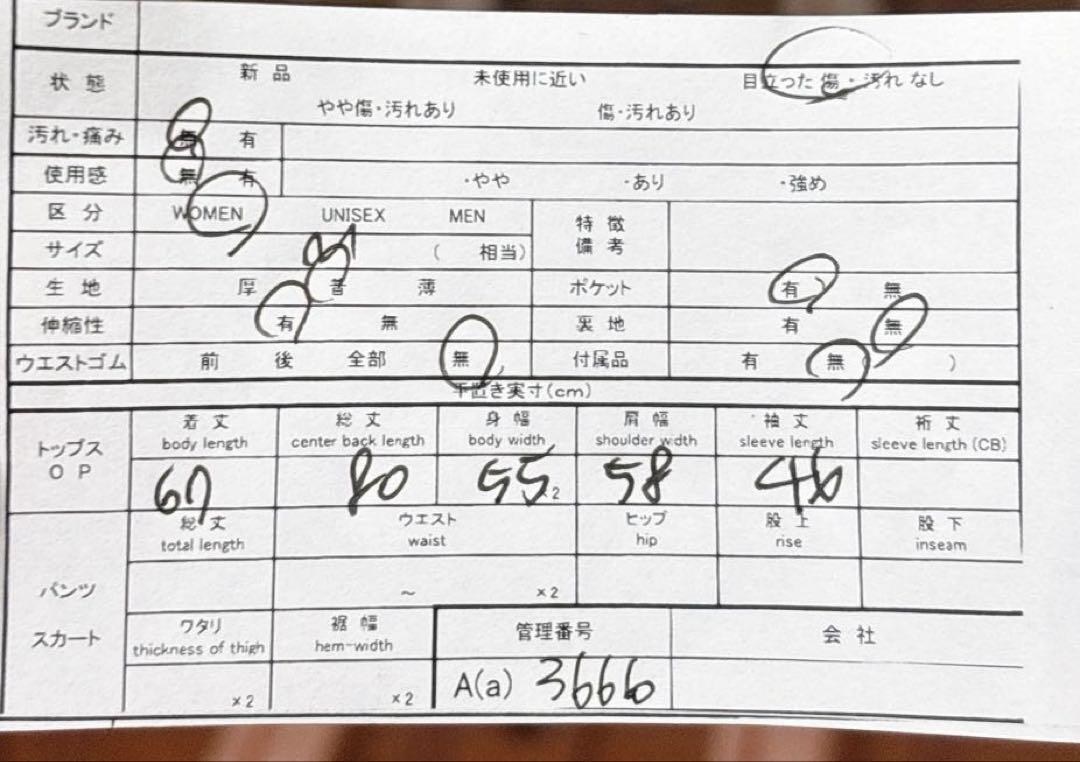 ブランド
状態 新品 未使用に近い 目立った傷・汚れなし
やや傷・汚れあり 傷・汚れあり
汚れ・痛み 無 有
使用感 無 有 ・やや ・あり ・強め
区分 WOMEN UNISEX MEN 特徴
備考
サイズ ( 相当)
生地 厚 普 薄 ポケット 有 無
伸縮性 有 無 裏地 有 無
ウエストゴム 前 後 全部 無 付属品 有 無 )
平置き実寸(cm)
着丈 総丈 身幅 肩幅 袖丈 裄丈
トップス body length center back length body width shoulder width sleeve length sleeve length (CB)
OP 67 80 55 ×2 58 46
総丈 ウエスト ヒップ 股上 股下
total length waist hip rise inseam
パンツ ~ ×2
スカート ワタリ 裾幅 管理番号 会社
thickness of thigh hem-width
×2 ×2 A(a) 3666